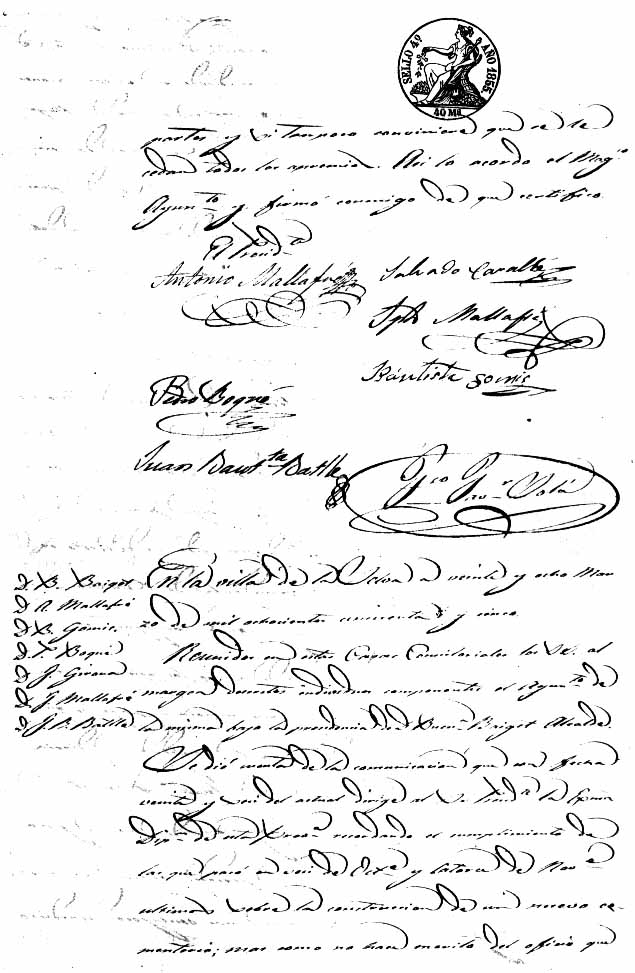 SELLO 4º AÑO 1855
40 Ms
partes y si tampoco conviniere que se le
cedan todos los aprovemia. Asi lo acordo el Magº
Ayunto y firmó conmigo de que certifico.
El Presidte
Antonio Mallafré
Salvado Cavallé
Jph Mallafré
Bautista Gomis
Pero Boqué
Juan Bautta Batlle
Fco Solá
D. B. Baiget
D. A. Mallafré
D. B. Gomis
D. P. Boqué
D. J. Girona
D. J. Mallafré
D. J. B. Batlle
En la villa de la Selva a veinte y ocho Mar
zo de mil ochocientos cincuenta y cinco
Reunidos en estas Casas Consistoriales los Se. al
margen descritos individuos componentes el Ayunto de
la misma bajo la presidencia de Buen. Baiget Alcalde.
Se dió cuenta de la comunicacion que con fecha
veinte y seis del actual dirige al Sr. Presidte la Exma
Dipn de esta Prova recordando el cumplimiento de
las que pasó en seis de Octe y catorce de Nove
ultimos sobre la construccion de un nuevo ce
menterio; mas como no hace merito del oficio que